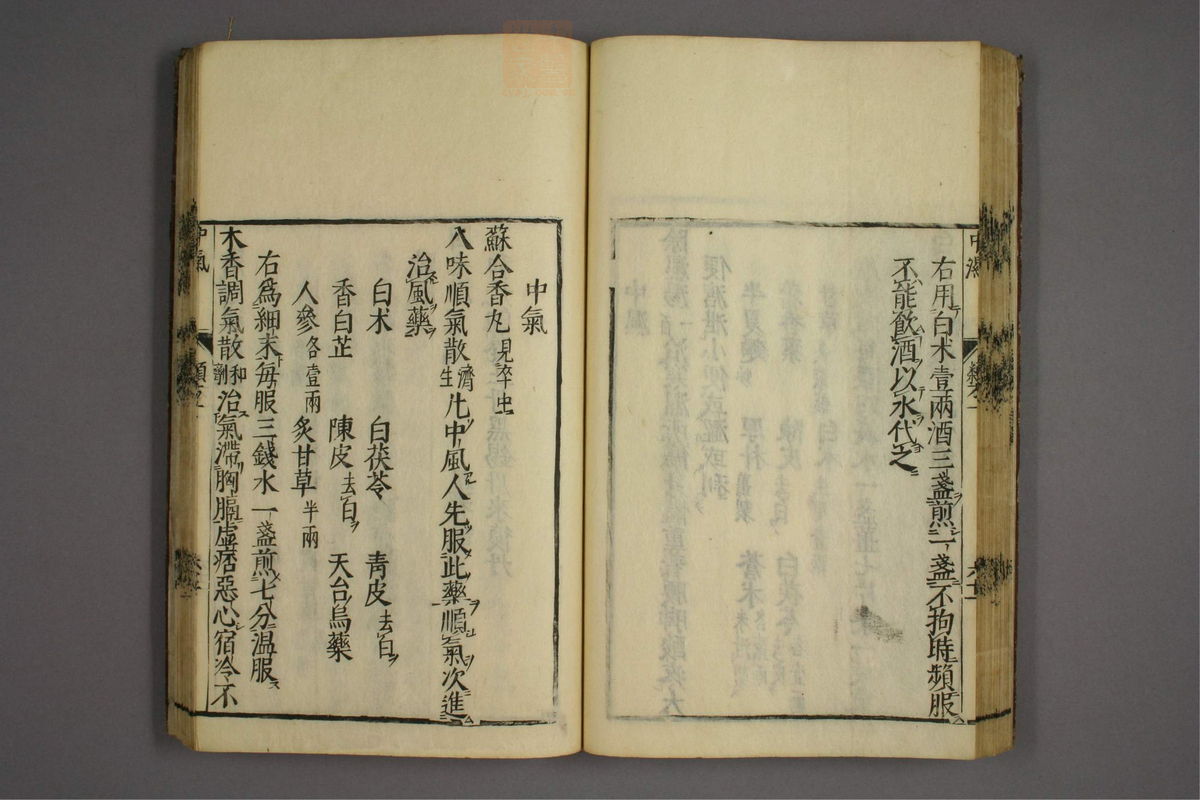 右用白术壹兩酒三盞煎一盞不拘時頻服
不能飲酒以水代之
中氣
蘇合香丸見卒中
八味順氣散濟生凡中風人先服此藥順氣次進
治風藥
白术 白茯苓 青皮去白
香白芷 陳皮去白 天台烏藥
人參各壹兩 炙甘草半兩
右為細末每服三錢水一盞煎七分温服
木香調氣散和劑治氣滯胸膈虛痞惡心宿冷不
中氣